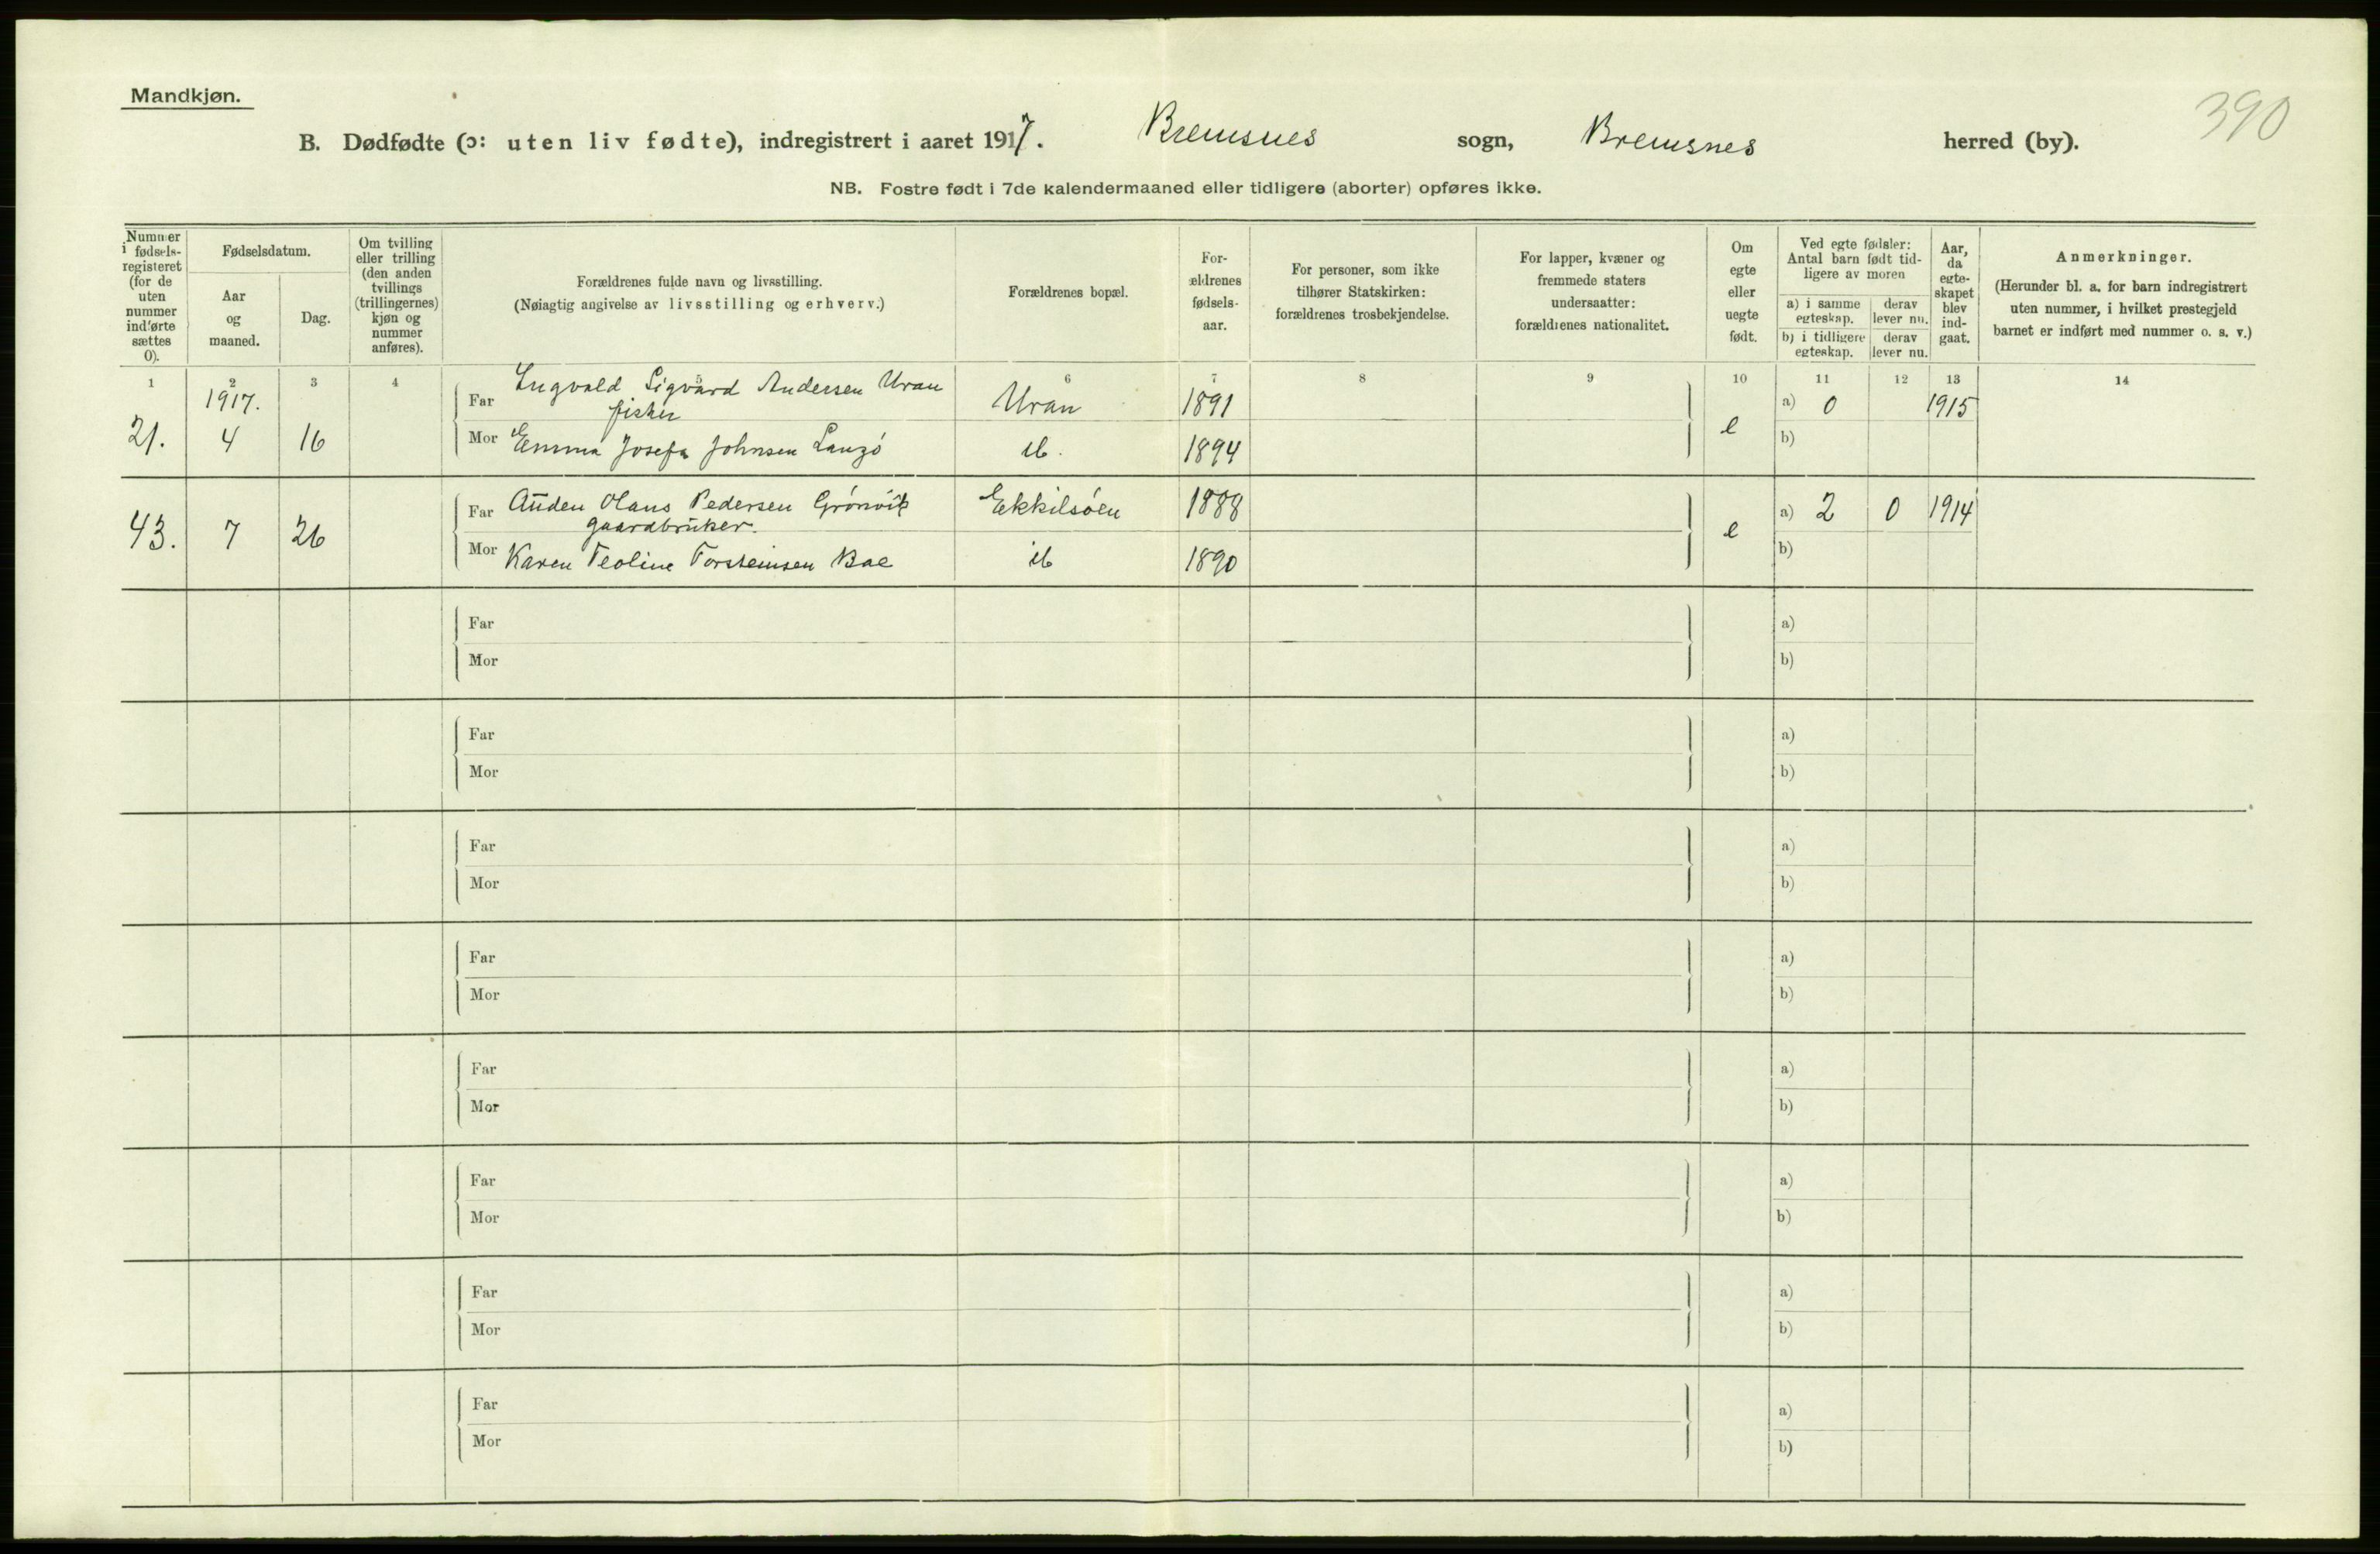 Mandkjøn.
390
B. Dødfødte (ɔ: uten liv fødte), indregistrert i aaret 1917. Bremsnes sogn, Bremsnes herred (by).
NB. Fostre født i 7de kalendermaaned eller tidligere (aborter) opføres ikke.
Nummer
i fødsels-
registeret
(for de
uten
nummer
indførte
sættes
0).
Fødselsdatum.
Aar
og
maaned.
Dag.
Om tvilling
eller trilling
(den anden
tvillings
(trillingernes)
kjøn og
nummer
anføres).
Forældrenes fulde navn og livsstilling.
(Nøiagtig angivelse av livsstilling og erhverv.)
Forældrenes bopæl.
For-
ældrenes
fødsels-
aar.
For personer, som ikke
tilhører Statskirken:
forældrenes trosbekjendelse.
For lapper, kvæner og
fremmede staters
undersaatter:
forældrenes nationalitet.
Om
egte
eller
uegte
født.
Ved egte fødsler:
Antal barn født tid-
ligere av moren
a) i samme
egteskap.
derav
lever nu.
b) i tidligere
egteskap.
derav
lever nu.
Aar,
da
egte-
skapet
blev
ind-
gaat.
Anmerkninger.
(Herunder bl. a. for barn indregistrert
uten nummer, i hvilket prestegjeld
barnet er indført med nummer o. s. v.)
1 2 3 4 5 6 7 8 9 10 11 12 13 14
1917.
Far Ingvald Sigvard Andersen Uran Uran 1891 a) 0 1915
fisker
21. 4 16 e
Mor Emma Josefa Johnsen Langø ib. 1894 b)
Far Auden Olaus Pedersen Grønvik Ekkilsøen 1888 a) 2 0 1914
gaardbruker.
43. 7 26 e
Mor Karen Teoline Torsteinsen Bae ib 1890 b)
Far a)
Mor b)
Far a)
Mor b)
Far a)
Mor b)
Far a)
Mor b)
Far a)
Mor b)
Far a)
Mor b)
Far a)
Mor b)
Far a)
Mor b)